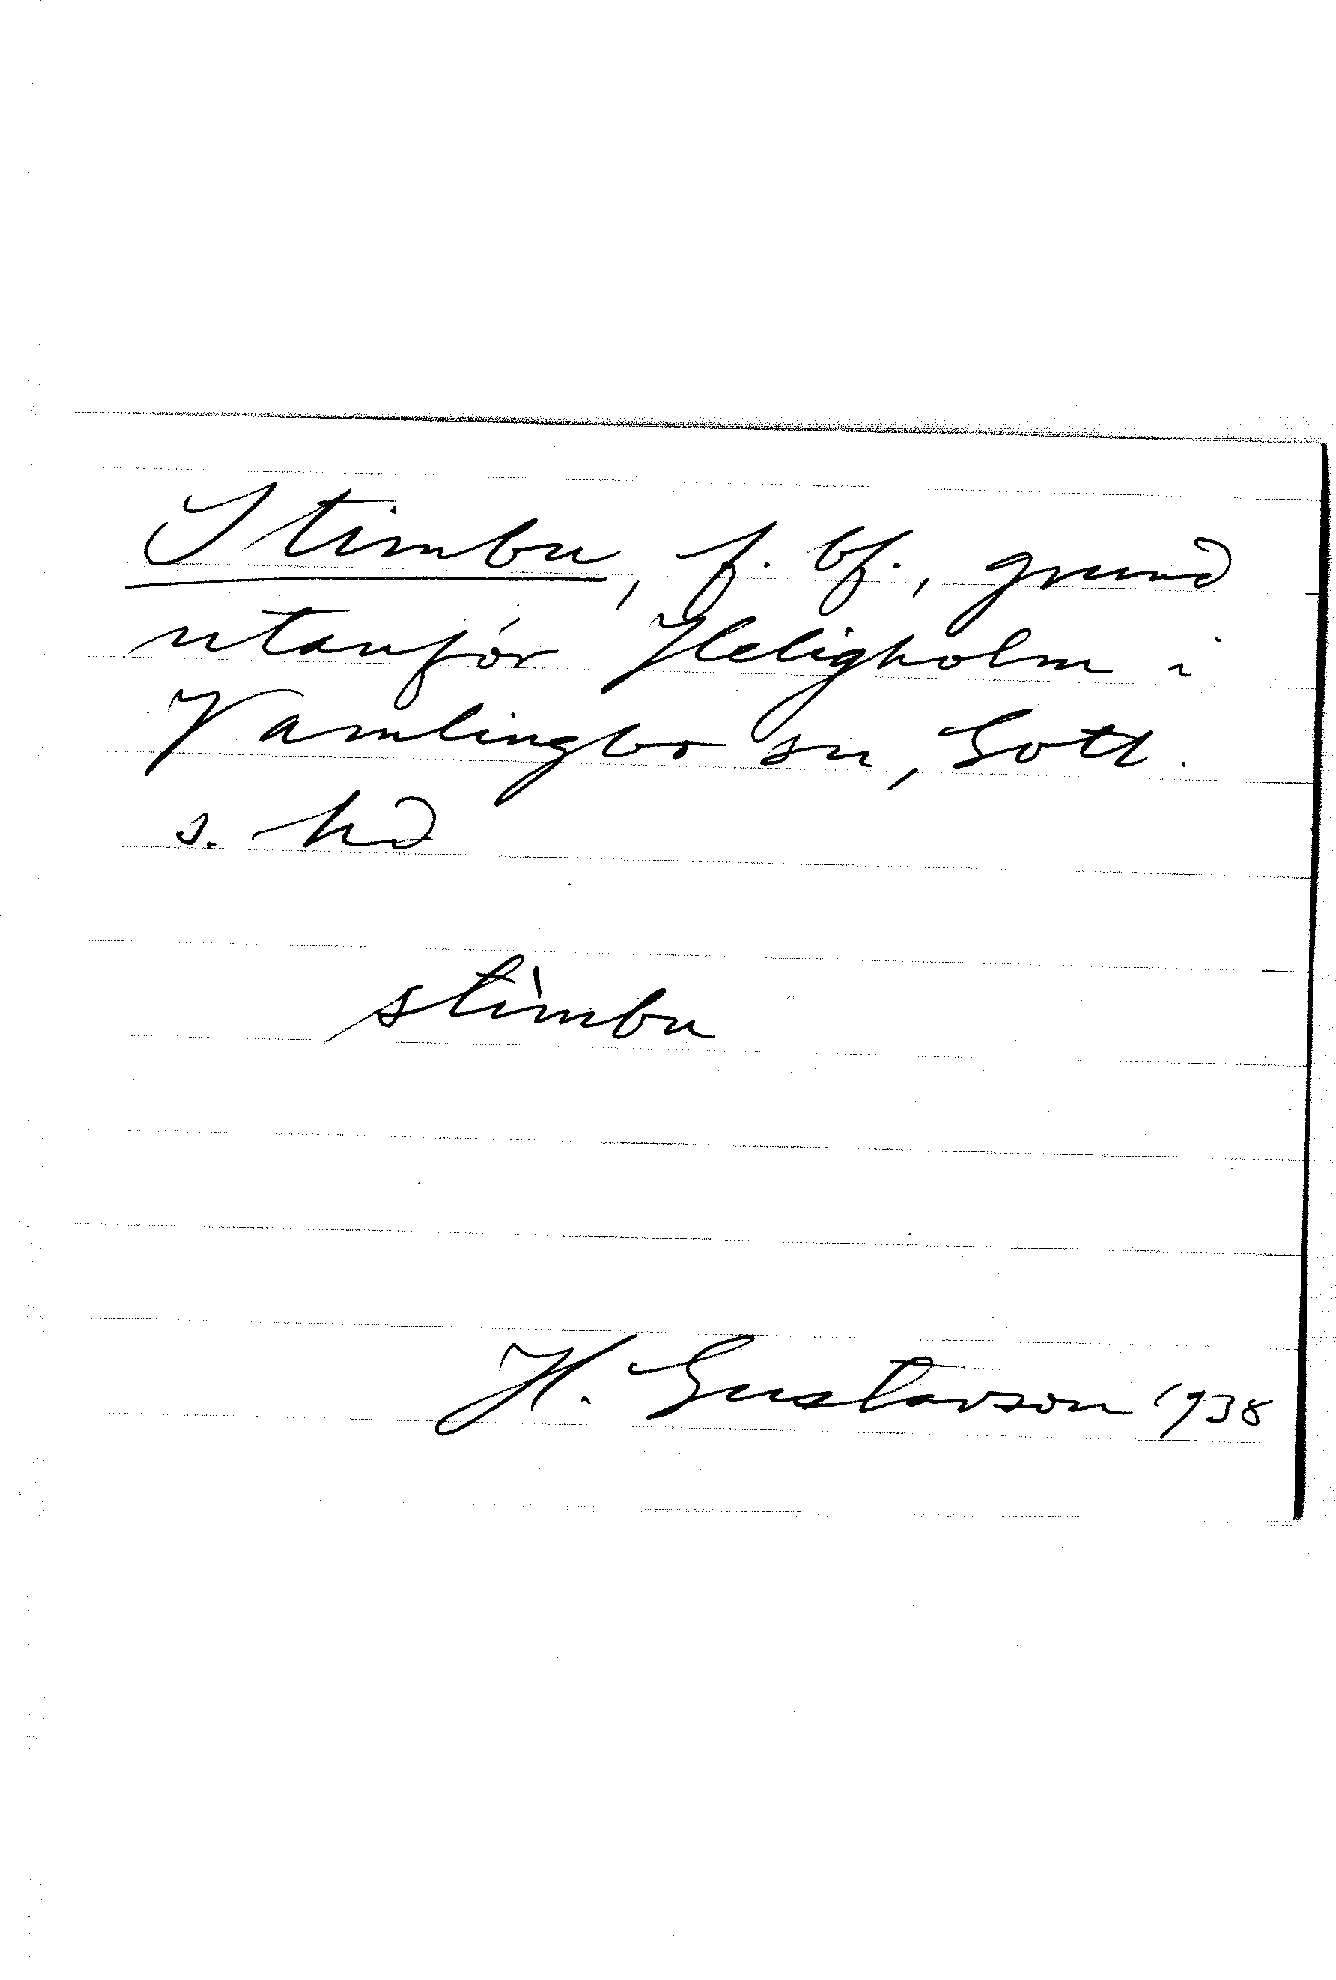 Stimbu, f. bf., grund
utanför Heligholm i
Vamlingbo sn, Gotl.
s. hd
stìmbu
H. Gustavson 1938